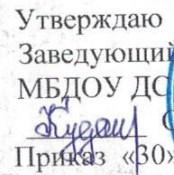 Утверждаю
Заведующий
МБДОУ ДС
Приказ «30»